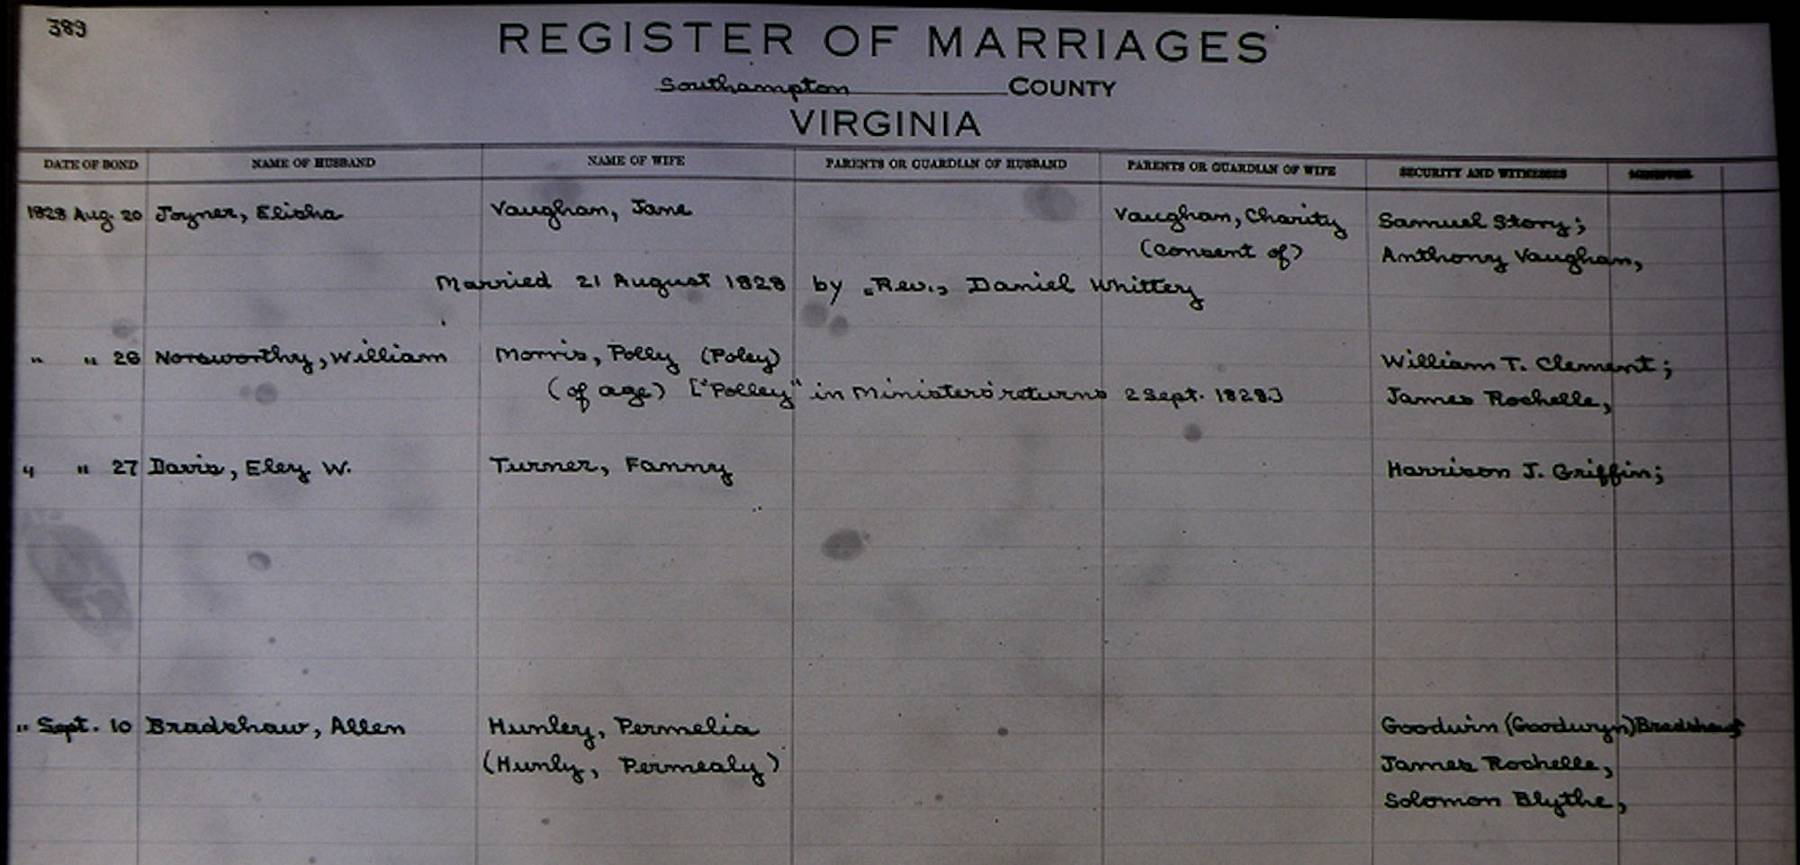 389
REGISTER OF MARRIAGES
Southampton COUNTY
VIRGINIA
DATE OF BOND NAME OF HUSBAND NAME OF WIFE PARENTS OR GUARDIAN OF HUSBAND PARENTS OR GUARDIAN OF WIFE SECURITY AND WITNESSES MINISTER
1828 Aug. 20 Joyner, Elisha Vaughan, Jane Vaughan, Charity Samuel Story;
(consent of) Anthony Vaughan,
Married 21 August 1828 by "Rev., Daniel Whittey
" " 26 Norsworthy, William Morris, Polly (Poley) William T. Clement;
(of age) ["Polley" in Ministers' returns 2 Sept. 1828.] James Rochelle,
" " 27 Davis, Eley W. Turner, Fanny Harrison J. Griffin;
" Sept. 10 Bradshaw, Allen Hunley, Permelia Goodwin (Goodwyn) Bradshaw;
(Hunly, Permealy) James Rochelle,
Solomon Blythe,